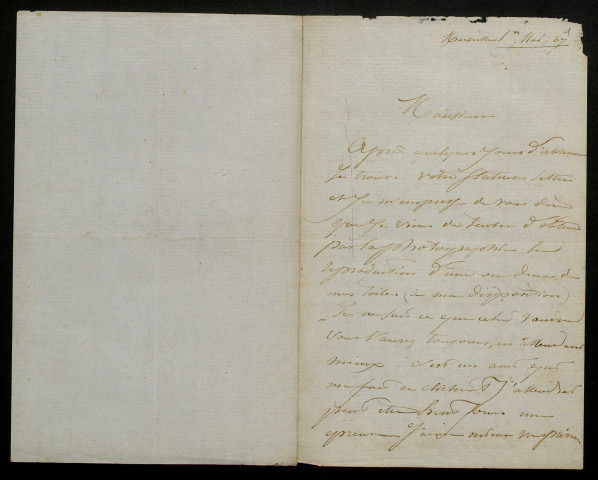 1er Mai 67
Monsieur
Après quelques jours d'absence
je trouve votre flatteuse lettre
et je m'empresse de vous dire
que je viens de tenter d'obtenir
par la photographie la
reproduction d'une ou deux de
mes toiles (à ma disposition)
Je ne sais ce que cela vaudra
vous l'aurez toujours, en attendant
mieux. C'est un ami qui
me fait ce cliché et j'attendrai
peut être huit jours une
épreuve J'aime mieux